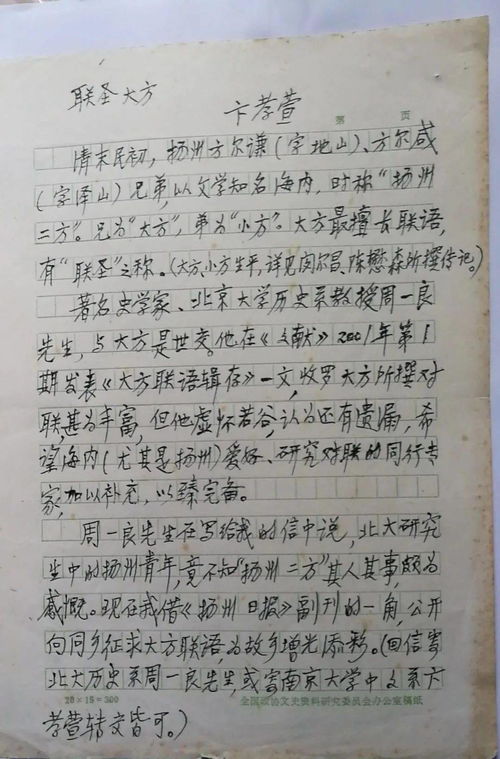 联圣大方
卞孝萱
第 页
清末民初，扬州方尔谦（字地山）、方尔咸
（字泽山）兄弟，以文学知名海内，时称“扬州
二方”。兄为“大方”，弟为“小方”。大方最擅长联语，
有“联圣”之称。（大方、小方生平，详见闵尔昌、陈懋森所撰传记。）
著名史学家、北京大学历史系教授周一良
先生，与大方是世交。他在《文献》2001年第1
期发表《大方联语辑存》一文，收罗大方所撰对
联，甚为丰富，但他虚怀若谷，认为还有遗漏，希
望海内（尤其是扬州）爱好、研究对联的同行专
家，加以补充，以臻完备。
周一良先生在写给我的信中说，北大研究
生中的扬州青年，竟不知“扬州二方”其人其事，颇为
感慨。现在我借《扬州日报》副刊的一角，公开
向同乡征求大方联语，为故乡增光添彩。（回信寄
北大历史系周一良先生，或寄南京大学中文系卞
20×15=300 全国政协文史资料研究委员会办公室稿纸
孝萱转交皆可。）